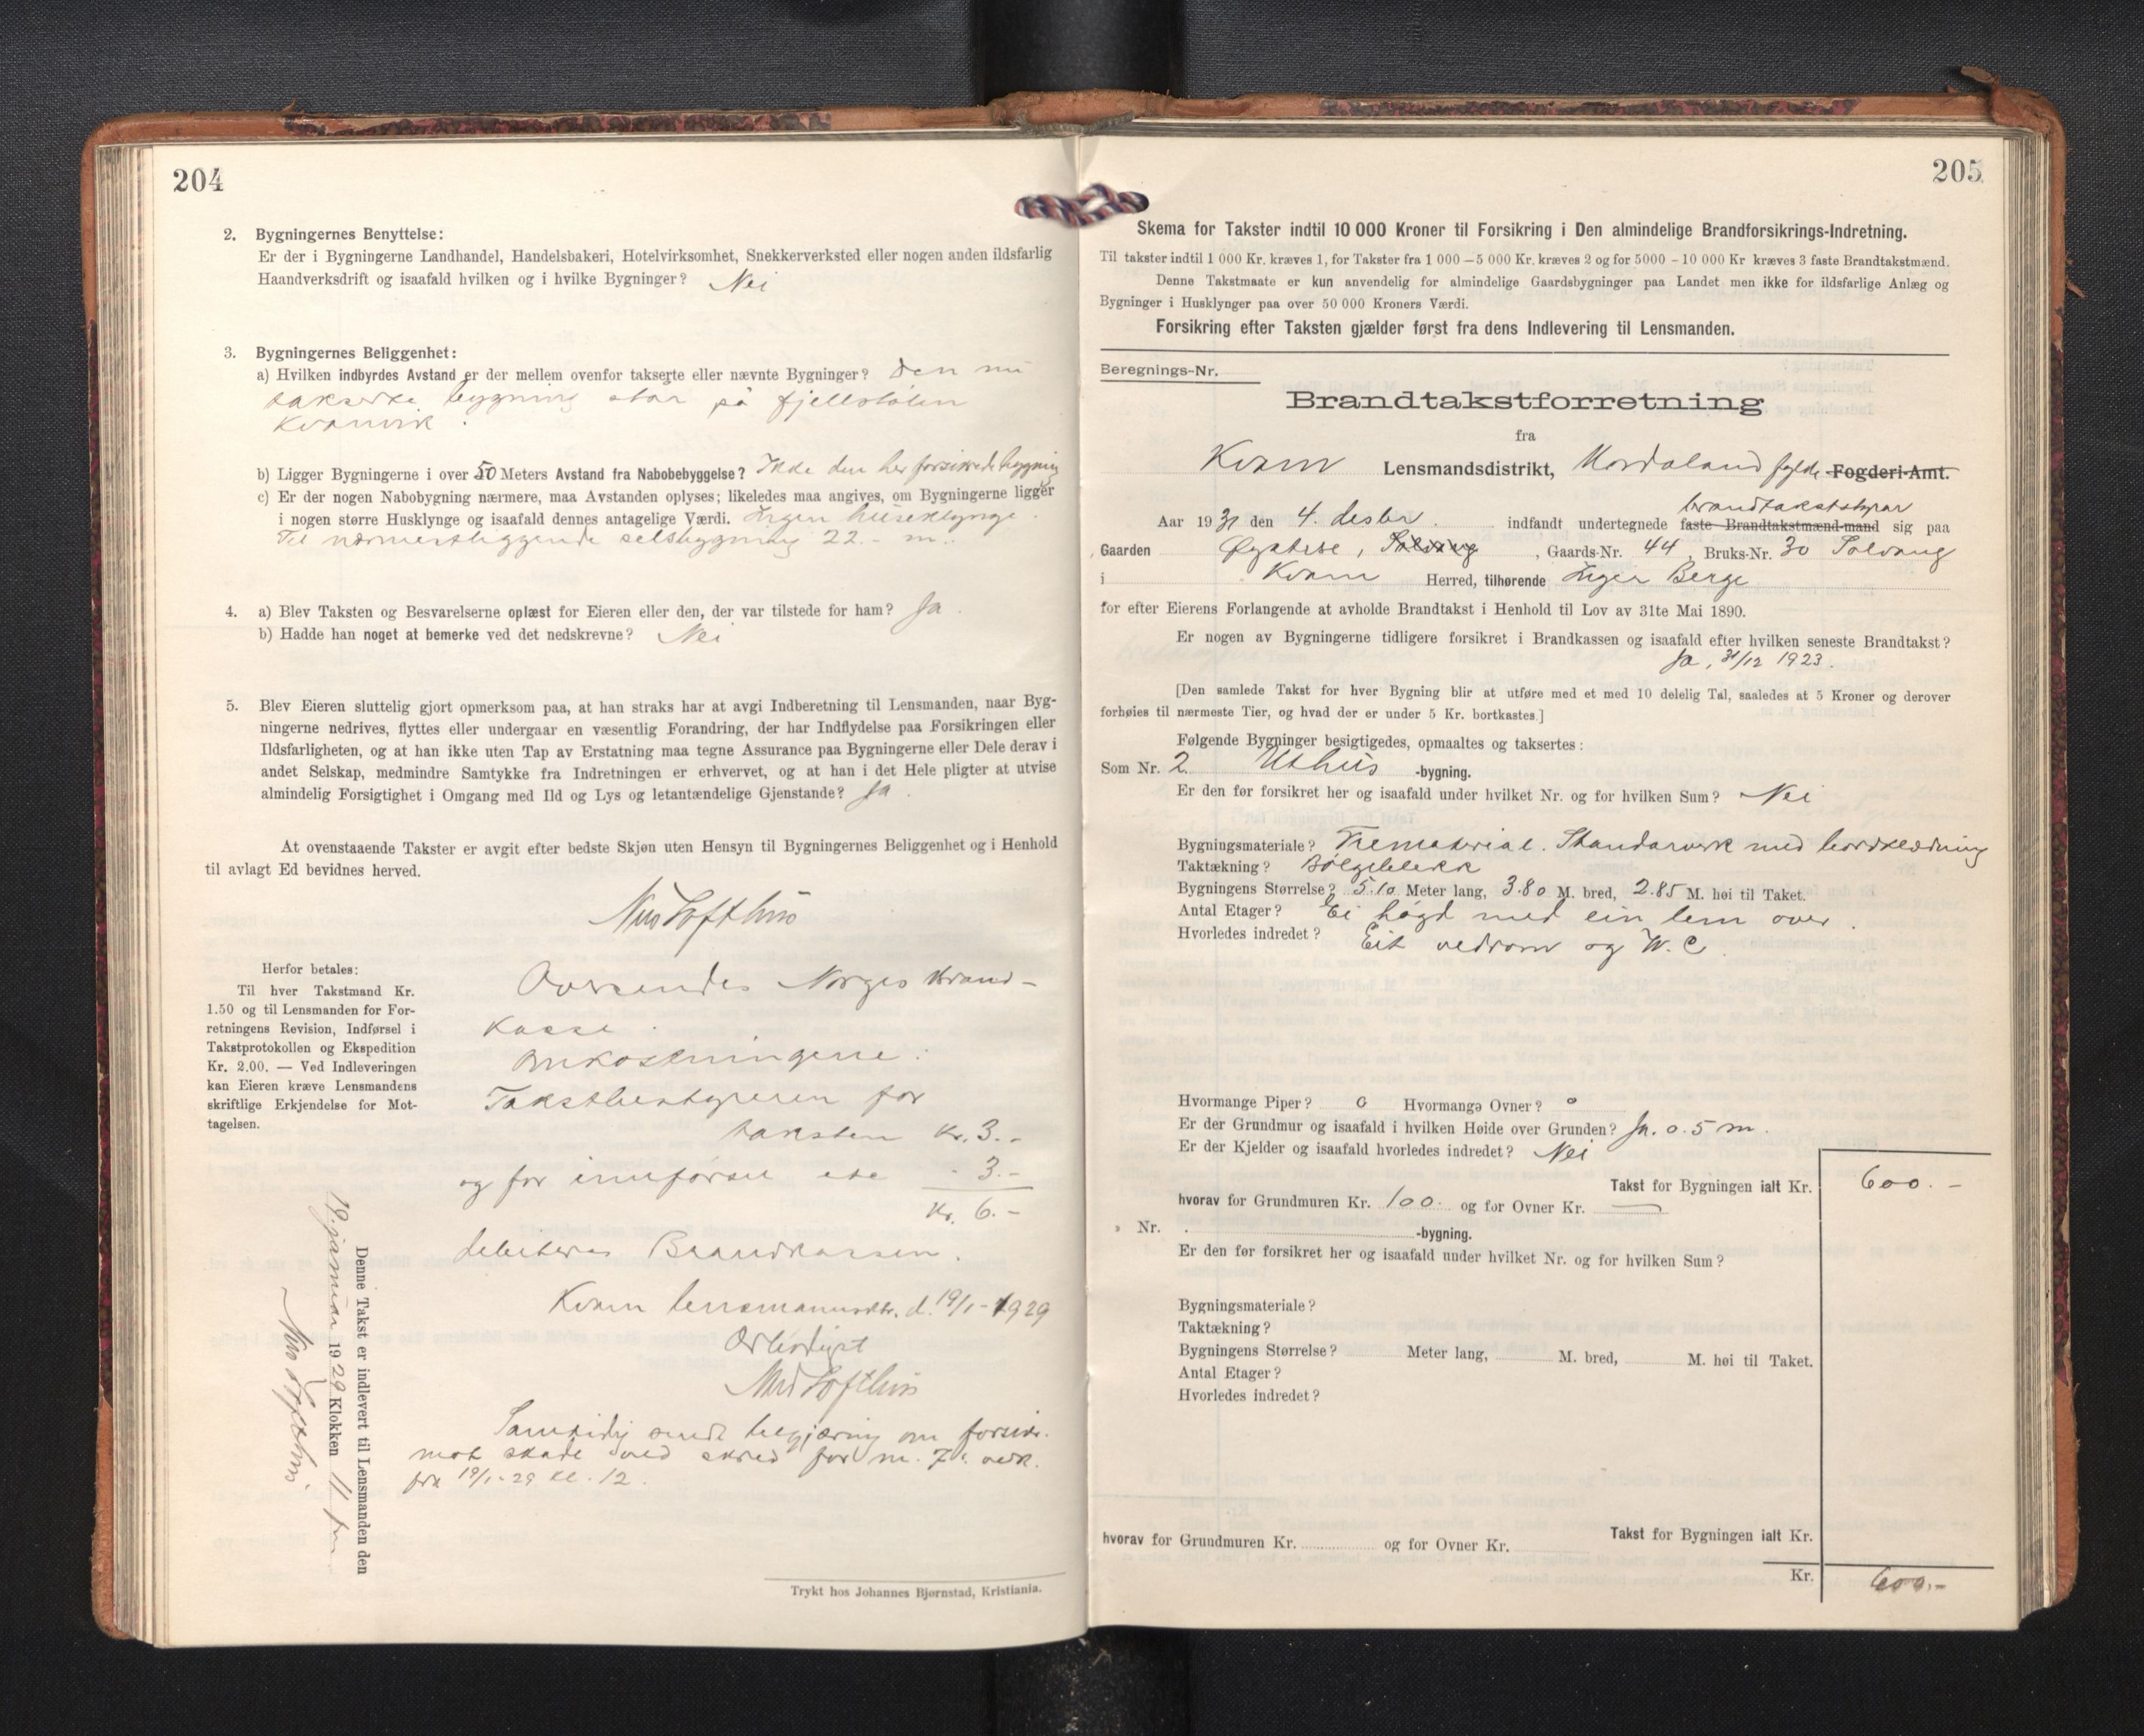 204
2. Bygningernes Benyttelse:
Er der i Bygningerne Landhandel, Handelsbakeri, Hotelvirksomhet, Snekkerverksted eller nogen anden ildsfarlig
Haandverksdrift og isaafald hvilken og i hvilke Bygninger? Nei
3. Bygningernes Beliggenhet:
a) Hvilken indbyrdes Avstand er der mellem ovenfor takserte eller nævnte Bygninger? Den nu
takserte bygning står på fjellstølen
Kvanvik.
b) Ligger Bygningerne i over 50 Meters Avstand fra Nabobebyggelse? Ikke den her forsikrede bygning
c) Er der nogen Nabobygning nærmere, maa Avstanden oplyses; likeledes maa angives, om Bygningerne ligger
i nogen større Husklynge og isaafald dennes antagelige Værdi. Ingen huseklynge.
Til nærmestliggende selsbygning 22.- m.
4. a) Blev Taksten og Besvarelserne oplæst for Eieren eller den, der var tilstede for ham? Ja.
b) Hadde han noget at bemerke ved det nedskrevne? Nei
5. Blev Eieren sluttelig gjort opmerksom paa, at han straks har at avgi Indberetning til Lensmanden, naar Byg-
ningerne nedrives, flyttes eller undergaar en væsentlig Forandring, der har Indflydelse paa Forsikringen eller
Ildsfarligheten, og at han ikke uten Tap av Erstatning maa tegne Assurance paa Bygningerne eller Dele derav i
andet Selskap, medmindre Samtykke fra Indretningen er erhvervet, og at han i det Hele pligter at utvise
almindelig Forsigtighet i Omgang med Ild og Lys og letantændelige Gjenstande? Ja.
At ovenstaaende Takster er avgit efter bedste Skjøn uten Hensyn til Bygningernes Beliggenhet og i Henhold
til avlagt Ed bevidnes herved.
Nils Lofthus
Herfor betales:
Til hver Takstmand Kr.
1.50 og til Lensmanden for For-
retningens Revision, Indførsel i
Takstprotokollen og Ekspedition
Kr. 2.00. — Ved Indleveringen
kan Eieren kræve Lensmandens
skriftlige Erkjendelse for Mot-
tagelsen.
Oversendes Norges Brand-
kasse.
Omkostningene:
Takstbestyreren for
taksten Kr. 3.-
og for innførsel etc - 3.-
Kr. 6.-
debiteres Brandkassen.
Kvam lensmannsktr. d. 19/1-1929
Ærbødigst
Nils Lofthus
Samtidig sendt begjæring om forsikr.
mot skade ved skred for nr. 7. verk.
fra 19/1-29 kl. 12.
Denne Takst er indlevert til Lensmanden den
19. januar 1929 Klokken 11 fm
Nils Lofthus
Trykt hos Johannes Bjørnstad, Kristiania.
205
Skema for Takster indtil 10 000 Kroner til Forsikring i Den almindelige Brandforsikrings-Indretning.
Til takster indtil 1 000 Kr. kræves 1, for Takster fra 1 000 — 5 000 Kr. kræves 2 og for 5000 - 10 000 Kr kræves 3 faste Brandtakstmænd.
Denne Takstmaate er kun anvendelig for almindelige Gaardsbygninger paa Landet men ikke for ildsfarlige Anlæg og
Bygninger i Husklynger paa over 50 000 Kroners Værdi.
Forsikring efter Taksten gjælder først fra dens Indlevering til Lensmanden.
Beregnings-Nr.
Brandtakstforretning
fra
Kvam Lensmandsdistrikt, Hordaland fylde Fogderi-Amt.
brandtakststyrar
Aar 1931 den 4. desbr. indfandt undertegnede faste Brandtakstmænd-mand sig paa
Gaarden Øystese, Solvang, Gaards-Nr. 44, Bruks-Nr. 30 Solvang
i Kvam Herred, tilhørende Inger Berge
for efter Eierens Forlangende at avholde Brandtakst i Henhold til Lov av 31te Mai 1890.
Er nogen av Bygningerne tidligere forsikret i Brandkassen og isaafald efter hvilken seneste Brandtakst?
Ja, 31/12 1923.
[Den samlede Takst for hver Bygning blir at utføre med et med 10 delelig Tal, saaledes at 5 Kroner og derover
forhøies til nærmeste Tier, og hvad der er under 5 Kr. bortkastes.]
Følgende Bygninger besigtigedes, opmaaltes og taksertes:
Som Nr. 2. Uthus -bygning.
Er den før forsikret her og isaafald under hvilket Nr. og for hvilken Sum? Nei
Bygningsmateriale? Trematerial. Standarverk med bordklædning
Taktækning? Bølgeblekk
Bygningens Størrelse? 5.10 Meter lang, 3.80 M. bred, 2.85 M. høi til Taket.
Antal Etager? Ei høgd med ein lem over.
Hvorledes indredet? Eit vedrom og W.C.
Hvormange Piper? 0 Hvormange Ovner? 0
Er der Grundmur og isaafald i hvilken Høide over Grunden? Ja. 0.5 m.
Er der Kjelder og isaafald hvorledes indredet? Nei
Takst for Bygningen ialt Kr. 600.-
hvorav for Grundmuren Kr. 100. og for Ovner Kr. —
" Nr. -bygning.
Er den før forsikret her og isaafald under hvilket Nr. og for hvilken Sum?
Bygningsmateriale?
Taktækning?
Bygningens Størrelse? Meter lang, M. bred, M. høi til Taket.
Antal Etager?
Hvorledes indredet?
Takst for Bygningen ialt Kr.
hvorav for Grundmuren Kr. og for Ovner Kr.
Kr. 600.-